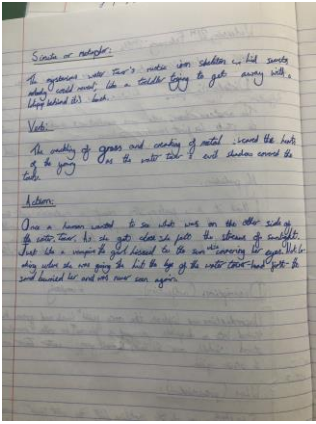 Simile or metaphor:
The mysterious water tower's rustic iron skeleton hid secrets
nobody could reveal, like a toddler trying to get away with a
behind it's back.
Verb:
The crackling of grass and creaking of metal scared the hearts
of the young as the water tower's evil shadow covered the
Action:
Once a human wanted to see what was on the other side of
the water tower. As she got close she felt the streams of sunlight.
Just like a vampire the girl hissed to the sun while covering her eyes. Not
where she was going she hit the leg of the water tower the
sand buried her and was never seen again.